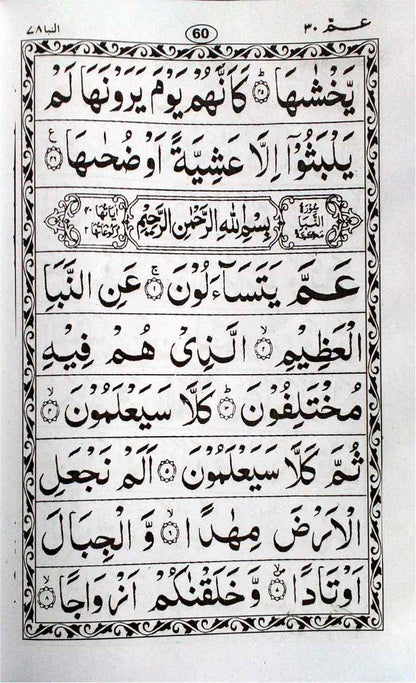 عمّ ٣٠
60
النبا ٧٨
يَّخْشٰىهَا ؕ ﴿۴۵﴾ كَاَنَّهُمْ يَوْمَ يَرَوْنَهَا لَمْ
يَلْبَثُوْۤا اِلَّا عَشِيَّةً اَوْ ضُحٰىهَا ﴿۴۶﴾ ع
سُوْرَةُ النَّبَاِ مَكِّيَّةٌ
بِسْمِ اللهِ الرَّحْمٰنِ الرَّحِيْمِ
اٰيَاتُهَا ۴۰ رُكُوْعَاتُهَا ۲
عَمَّ يَتَسَآءَلُوْنَ ۚ ﴿۱﴾ عَنِ النَّبَاِ
الْعَظِيْمِ ۙ ﴿۲﴾ الَّذِىْ هُمْ فِيْهِ
مُخْتَلِفُوْنَ ؕ ﴿۳﴾ كَلَّا سَيَعْلَمُوْنَ ۙ ﴿۴﴾
ثُمَّ كَلَّا سَيَعْلَمُوْنَ ﴿۵﴾ اَلَمْ نَجْعَلِ
الْاَرْضَ مِهٰدًا ۙ ﴿۶﴾ وَّ الْجِبَالَ
اَوْتَادًا ۪ۙ ﴿۷﴾ وَّ خَلَقْنٰكُمْ اَزْوَاجًا ۙ ﴿۸﴾